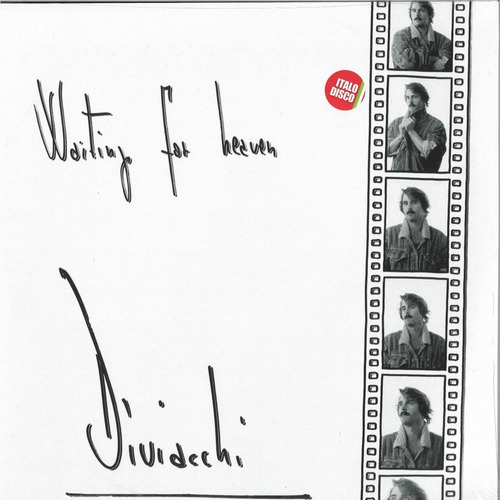 Waiting for heaven
ITALO
DISCO
Diviacchi